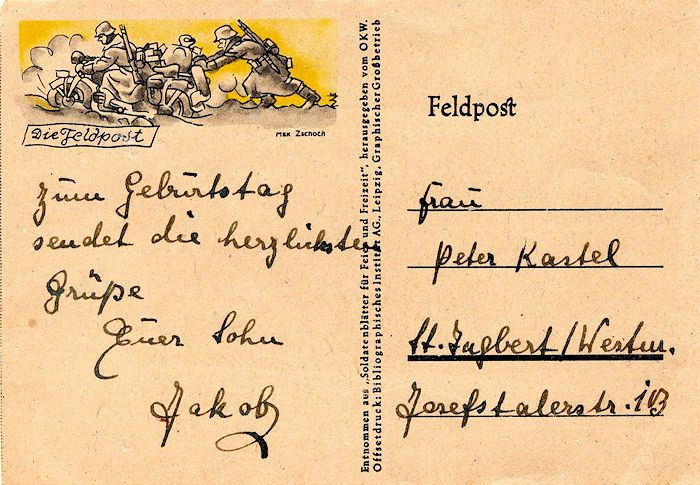 Die Feldpost
Max Zschoch
zum Geburtstag
sendet die herzlichsten
Grüße
Euer Sohn
Jakob
Entnommen aus „Soldatenblätter für Feier und Freizeit", herausgegeben vom OKW.
Offsetdruck: Bibliographisches Institut AG., Leipzig, Graphischer Großbetrieb
Feldpost
Frau
Peter Kastel
St. Ingbert/Westm.
Josefstalerstr.